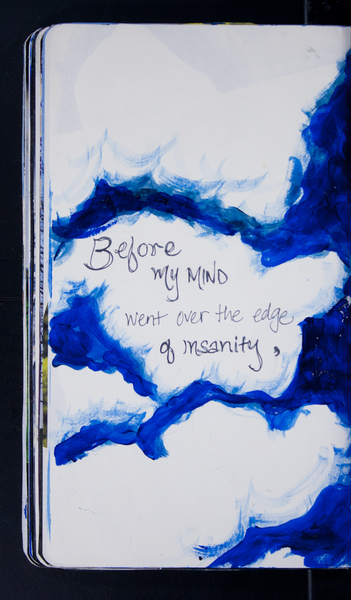 Before
my MIND
went over the edge
of insanity,